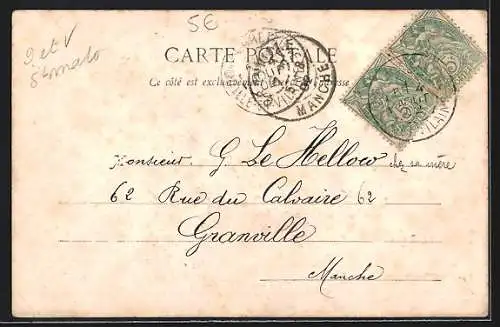 5€
I et V
St malo
CARTE POSTALE
Ce côté est exclusivement adresse
GRANVILLE
MANCHE
VILAIN
Monsieur G. Le Hellow chez sa mère
62 Rue du Calvaire 62
Granville
Manche